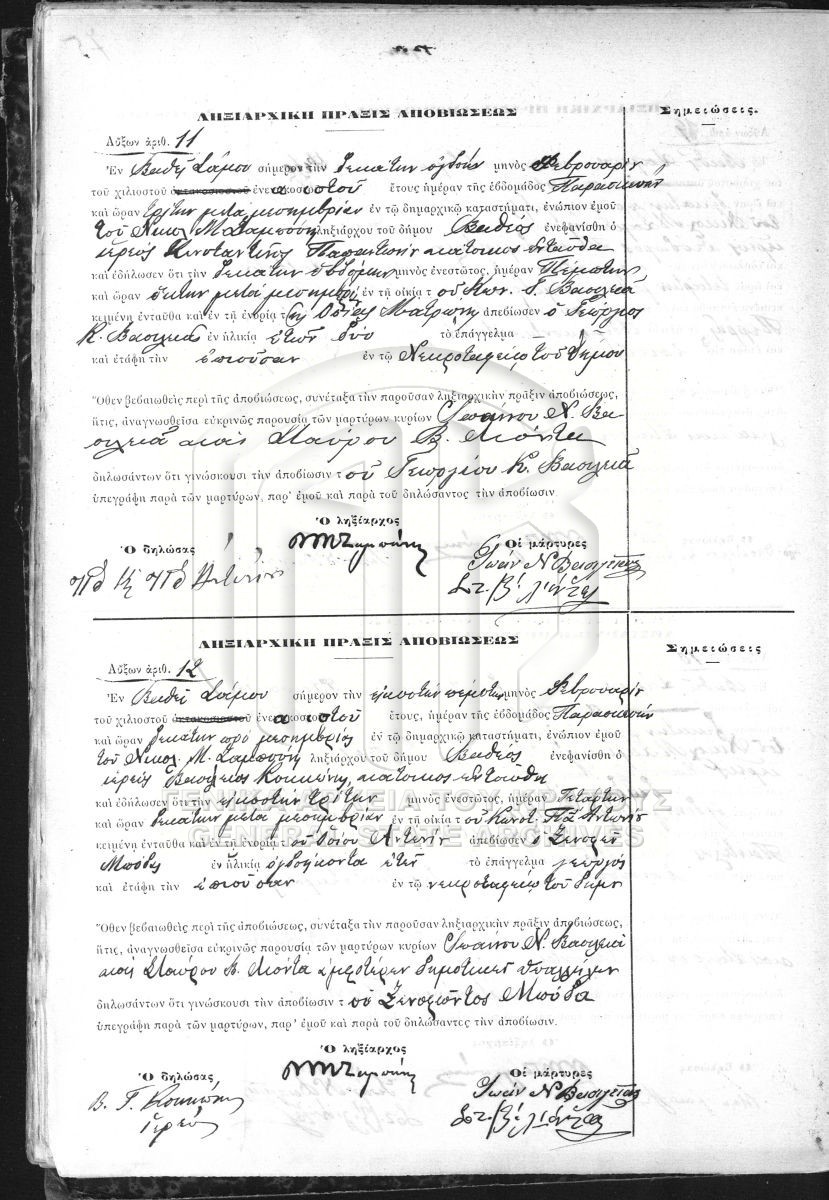 ΛΗΞΙΑΡΧΙΚΗ ΠΡΑΞΙΣ ΑΠΟΒΙΩΣΕΩΣ
Σημειώσεις.
Αὔξων ἀριθ. 11
Ἐν Βαθεῖ Σάμου σήμερον τὴν δεκάτην ὀγδόην μηνὸς Φεβρουαρίου
τοῦ χιλιοστοῦ ὀκτακοσιοστοῦ ἐνεακοσιοστοῦ ἔτους ἡμέραν τῆς ἑβδομάδος Παρασκευὴν
καὶ ὥραν τρίτην μετὰ μεσημβρίαν ἐν τῷ δημαρχικῷ καταστήματι, ἐνώπιον ἐμοῦ
τοῦ Νικ. Μ. Ζαμπούνη ληξιάρχου τοῦ δήμου Βαθέος ἐνεφανίσθη ὁ
ἱερεὺς Κωνσταντῖνος Παπαντωνίου κάτοικος ἐνταῦθα
καὶ ἐδήλωσεν ὅτι τὴν δεκάτην ἑβδόμην μηνὸς ἐνεστῶτος, ἡμέραν Πέμπτην
καὶ ὥραν ἕκτην μετὰ μεσημβρίαν ἐν τῇ οἰκίᾳ τοῦ Κων. Βασιλειᾶ
κειμένῃ ἐνταῦθα καὶ ἐν τῇ ἐνορίᾳ τῆς Ὁσίας Ματρώνης ἀπεβίωσεν ὁ Γεώργιος
Κ. Βασιλειᾶ ἐν ἡλικίᾳ ἐτῶν δύο τὸ ἐπάγγελμα
καὶ ἐτάφη τὴν ἐπιοῦσαν ἐν τῷ Νεκροταφείῳ τοῦ Δήμου
Ὅθεν βεβαιωθεὶς περὶ τῆς ἀποβιώσεως, συνέταξα τὴν παροῦσαν ληξιαρχικὴν πρᾶξιν ἀποβιώσεως,
ἥτις, ἀναγνωσθεῖσα εὐκρινῶς παρουσίᾳ τῶν μαρτύρων κυρίων Ἰωάννου Ν. Βα
σιλειᾶ καὶ Σταύρου Β. Λιόντα
δηλωσάντων ὅτι γινώσκουσι τὴν ἀποβίωσιν τοῦ Γεωργίου Κ. Βασιλειᾶ
ὑπεγράφη παρὰ τῶν μαρτύρων, παρ' ἐμοῦ καὶ παρὰ τοῦ δηλώσαντος τὴν ἀποβίωσιν.
Ὁ ληξίαρχος
Ὁ δηλώσας
Οἱ μάρτυρες
ΝΜΖαμπούνης
Ἰωάν Ν Βασιλειᾶς
Στ. Β. Λιόντας
ΛΗΞΙΑΡΧΙΚΗ ΠΡΑΞΙΣ ΑΠΟΒΙΩΣΕΩΣ
Σημειώσεις
Αὔξων ἀριθ. 12
Ἐν Βαθεῖ Σάμου σήμερον τὴν εἰκοστὴν πέμπτην μηνὸς Φεβρουαρίου
τοῦ χιλιοστοῦ ὀκτακοσιοστοῦ ἐνεακοσιοστοῦ ἔτους, ἡμέραν τῆς ἑβδομάδος Παρασκευὴν
καὶ ὥραν δεκάτην πρὸ μεσημβρίας ἐν τῷ δημαρχικῷ καταστήματι, ἐνώπιον ἐμοῦ
τοῦ Νικολ. Μ. Ζαμπούνη ληξιάρχου τοῦ δήμου Βαθέος ἐνεφανίσθη ὁ
ἱερεὺς Βασίλειος Κοκκώνης κάτοικος ἐνταῦθα
καὶ ἐδήλωσεν ὅτι τὴν εἰκοστὴν τρίτην μηνὸς ἐνεστῶτος, ἡμέραν Τετάρτην
καὶ ὥραν δεκάτην μετὰ μεσημβρίαν ἐν τῇ οἰκίᾳ τοῦ Κωνστ. Πα Αντωνίου
κειμένῃ ἐνταῦθα καὶ ἐν τῇ ἐνορίᾳ τοῦ Ὁσίου Ἀντωνίου ἀπεβίωσεν ὁ Ξενοφῶν
ἐν ἡλικίᾳ ὀγδοήκοντα ἐτῶν τὸ ἐπάγγελμα γεωργὸς
καὶ ἐτάφη τὴν ἐπιοῦσαν ἐν τῷ νεκροταφείῳ τοῦ Δήμου
Ὅθεν βεβαιωθεὶς περὶ τῆς ἀποβιώσεως, συνέταξα τὴν παροῦσαν ληξιαρχικὴν πρᾶξιν ἀποβιώσεως,
ἥτις, ἀναγνωσθεῖσα εὐκρινῶς παρουσίᾳ τῶν μαρτύρων κυρίων Ἰωάννου Ν. Βασιλειᾶ
καὶ Σταύρου Β. Λιόντα ἀμφοτέρων δημοτικῶν ὑπαλλήλων
δηλωσάντων ὅτι γινώσκουσι τὴν ἀποβίωσιν τοῦ Ξενοφῶντος
ὑπεγράφη παρὰ τῶν μαρτύρων, παρ' ἐμοῦ καὶ παρὰ τοῦ δηλώσαντος τὴν ἀποβίωσιν.
Ὁ ληξίαρχος
Ὁ δηλώσας
Οἱ μάρτυρες
ΝΜΖαμπούνης
Β. Γ. Κοκκώνης
Ἱερεύς
Ἰωάν Ν Βασιλειᾶς
Στ. Β. Λιόντας
ΓΕΝΙΚΑ ΑΡΧΕΙΑ ΤΟΥ ΚΡΑΤΟΥΣ
GENERAL STATE ARCHIVES